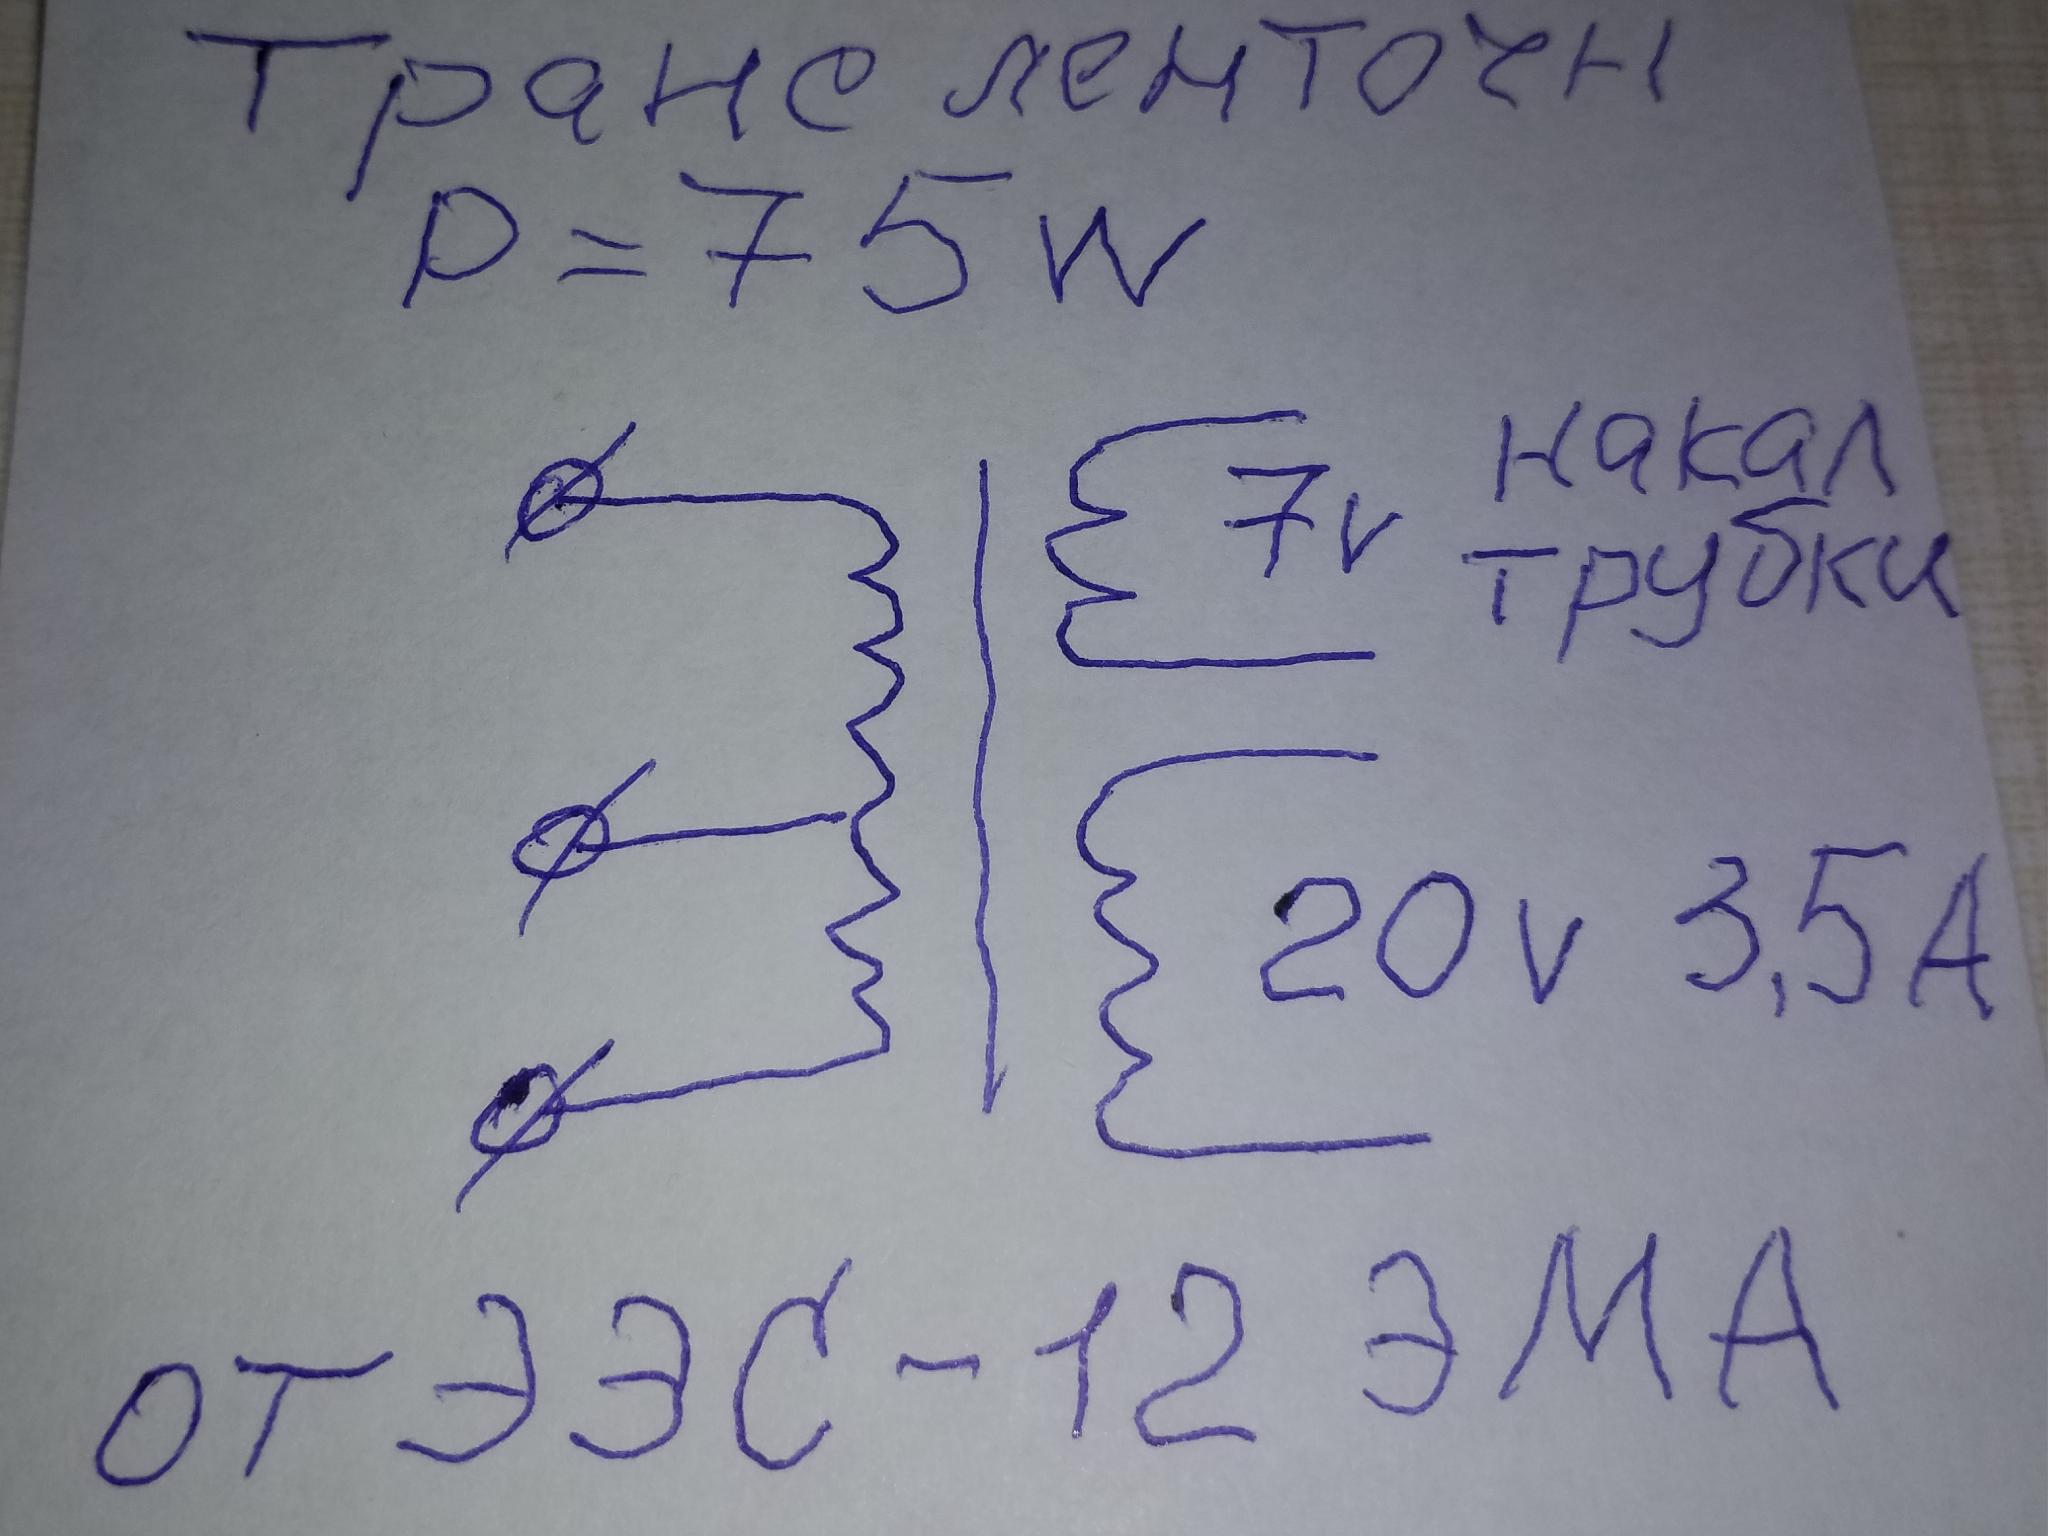 Транс ленточн
P=75W
7v накал
трубки
20v 3,5А
от ЭЭС-12 ЭМА